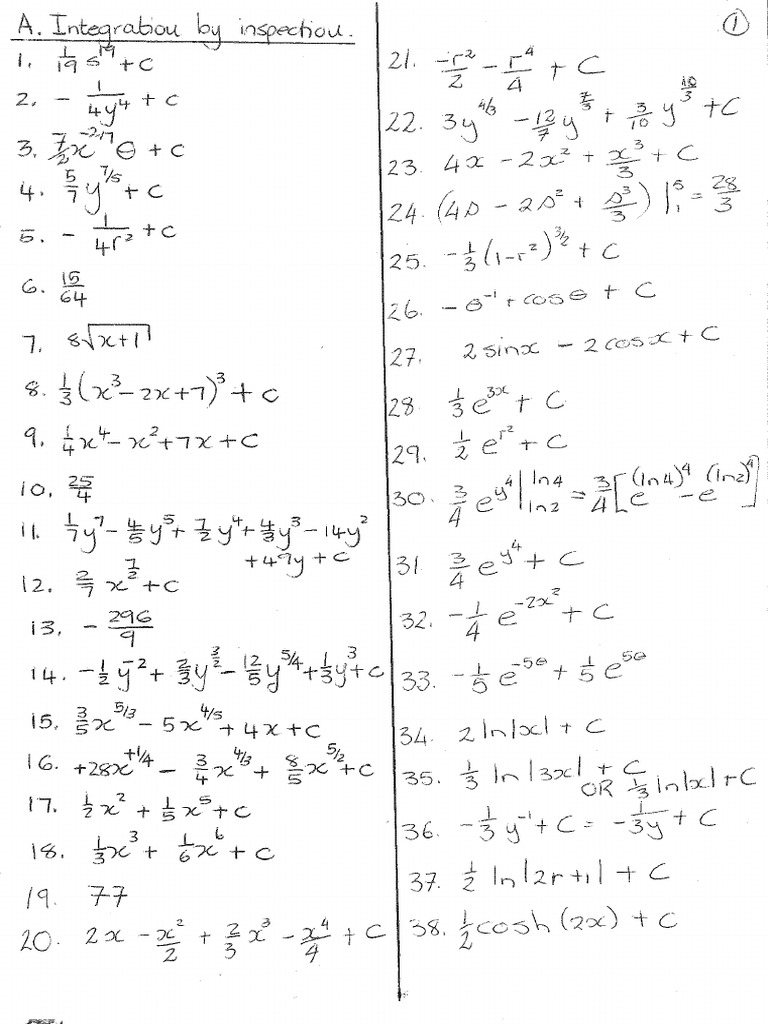 A. Integration by inspection.
1. 1/19 s^19 + C
2. - 1/(4y^4) + C
3. 7/2 x^-217 θ + C
4. 5/7 y^(7/5) + C
5. - 1/(4r^2) + C
6. 15/64
7. 8√(x+1)
8. 1/3 (x^3 - 2x + 7)^3 + C
9. 1/4 x^4 - x^2 + 7x + C
10. 25/4
11. 1/7 y^7 - 4/5 y^5 + 7/2 y^4 + 4/3 y^3 - 14y^2
+ 49y + C
12. 2/7 x^(7/2) + C
13. - 296/9
14. -1/2 y^-2 + 2/3 y^(3/2) - 12/5 y^(5/4) + 1/3 y^3 + C
15. 3/5 x^(5/3) - 5x^(4/5) + 4x + C
16. +28x^(+1/4) - 3/4 x^(4/3) + 8/5 x^(5/2) + C
17. 1/2 x^2 + 1/5 x^5 + C
18. 1/3 x^3 + 1/6 x^6 + C
19. 77
20. 2x - x^2/2 + 2/3 x^3 - x^4/4 + C
1
21. -r^2/2 - r^4/4 + C
22. 3y^(4/3) - 12/7 y^(7/3) + 3/10 y^(10/3) + C
23. 4x - 2x^2 + x^3/3 + C
24. (4s - 2s^2 + s^3/3) |_1^5 = 28/3
25. -1/3 (1-r^2)^(3/2) + C
26. - θ^-1 + cosθ + C
27. 2 sinx - 2 cosx + C
28. 1/3 e^(3x) + C
29. 1/2 e^(r^2) + C
30. 3/4 e^(y^4) |_ln2^ln4 = 3/4 [e^((ln4)^4) - e^((ln2)^4)]
31. 3/4 e^(y^4) + C
32. -1/4 e^(-2x^2) + C
33. -1/5 e^(-5θ) + 1/5 e^(5θ)
34. 2 ln|x| + C
35. 1/3 ln|3x| + C
OR 1/3 ln|x| + C
36. -1/3 y^-1 + C = - 1/(3y) + C
37. 1/2 ln|2r+1| + C
38. 1/2 cosh(2x) + C